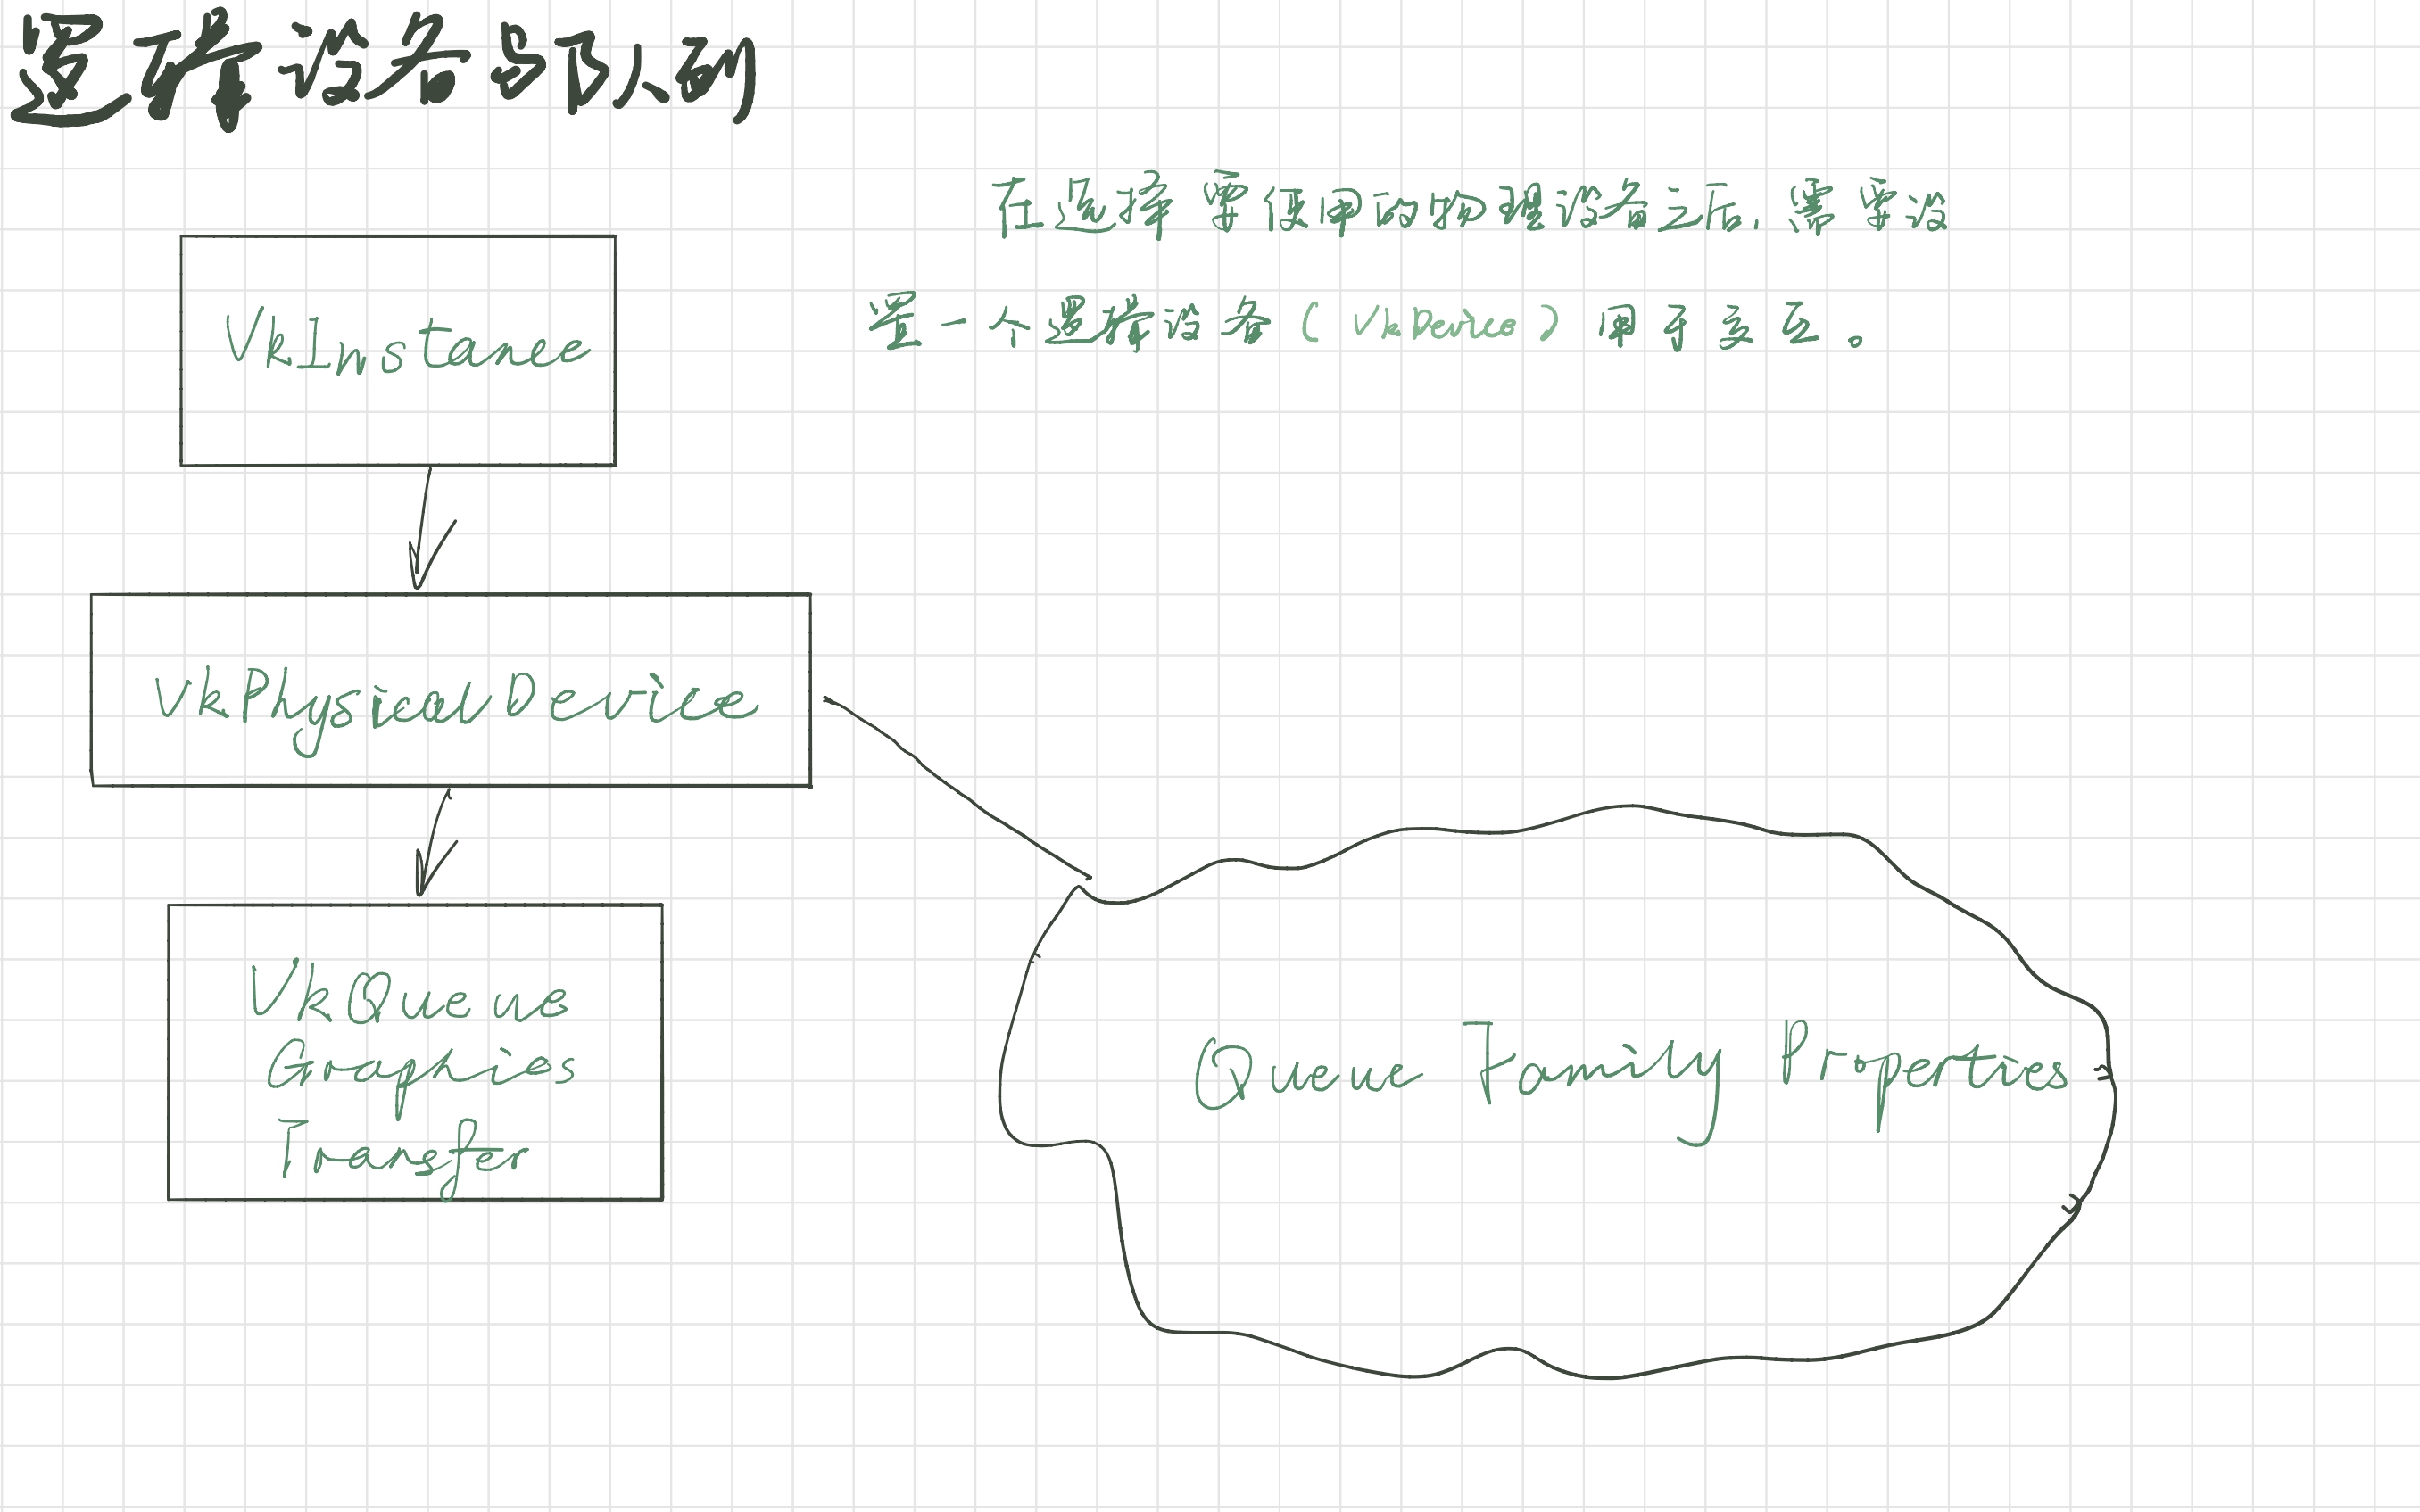 逻辑设备与队列
在选择要使用的物理设备之后，需要设
置一个逻辑设备（VkDevice）用于交互。
VkInstance
VkPhysicalDevice
VkQueue
Graphics
Transfer
Queue Family Properties